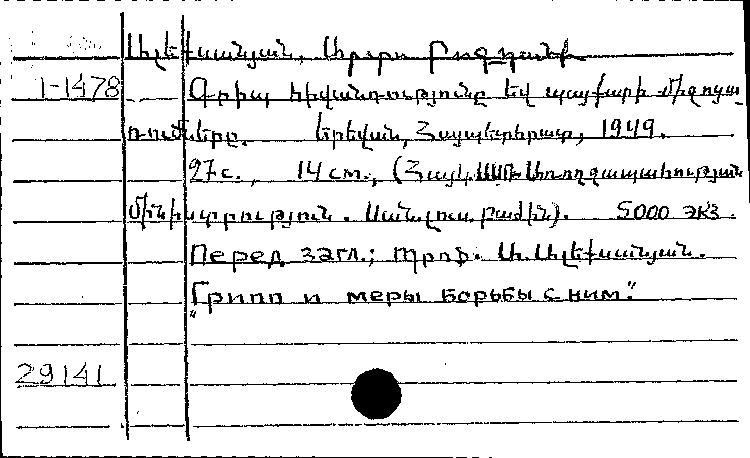 Ալեքսանյան, Արարս Բագրատի
1-1478 Գրիպ հիվանդությունը եվ պայքարի միջոցա
ռումները. Երեվան, Հայպետհրատ, 1949.
27 с., 14 см., (Հայկ. ՍՍՌ Առողջապահության
մինիստրություն. Սանլուս. բաժին). 5000 экз.
Перед загл.; Պրոֆ. Ա. Ալեքսանյան.
"Грипп и меры борьбы с ним."
29141